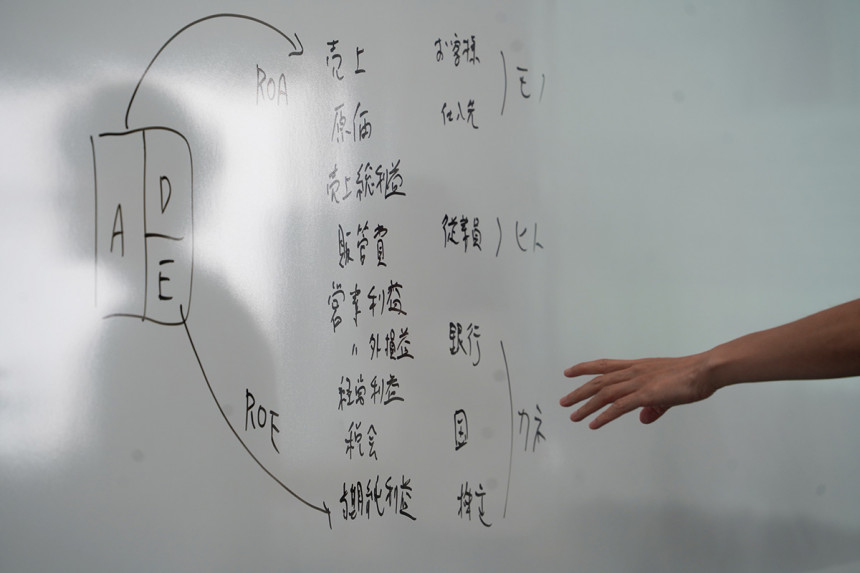 ROA
A
D
E
ROE
売上 お客様
モノ
原価 仕入先
売上総利益
販管費 従業員 ヒト
営業利益
〃外損益 銀行
経常利益
国 カネ
当期純利益